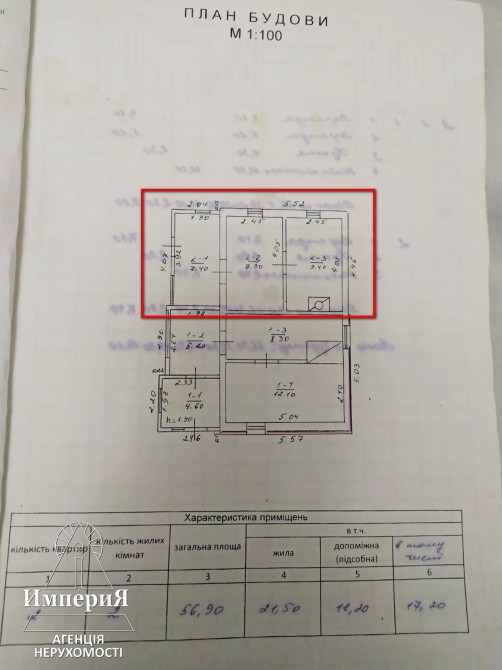 ПЛАН БУДОВИ
М 1:100
2.04
5.52
1.90
2.45
2.45
4.07
3.92
2-1
7.40
2-2
9.90
4.05
2-3
9.40
4.05
4.46
1.98
1-2
5.20
1-3
8.30
5.03
2.33
2.20
1.98
1-1
4.60
h=1.90
1-4
12.10
2.40
5.04
5.57
Характеристика приміщень
кількість квартир
кількість жилих кімнат
загальна площа
в т.ч.
жила
допоміжна (підсобна)
в тому числі
1
2
3
4
5
6
2
56,90
21,50
18,20
17,20
ИмпериЯ
АГЕНЦІЯ
НЕРУХОМОСТІ